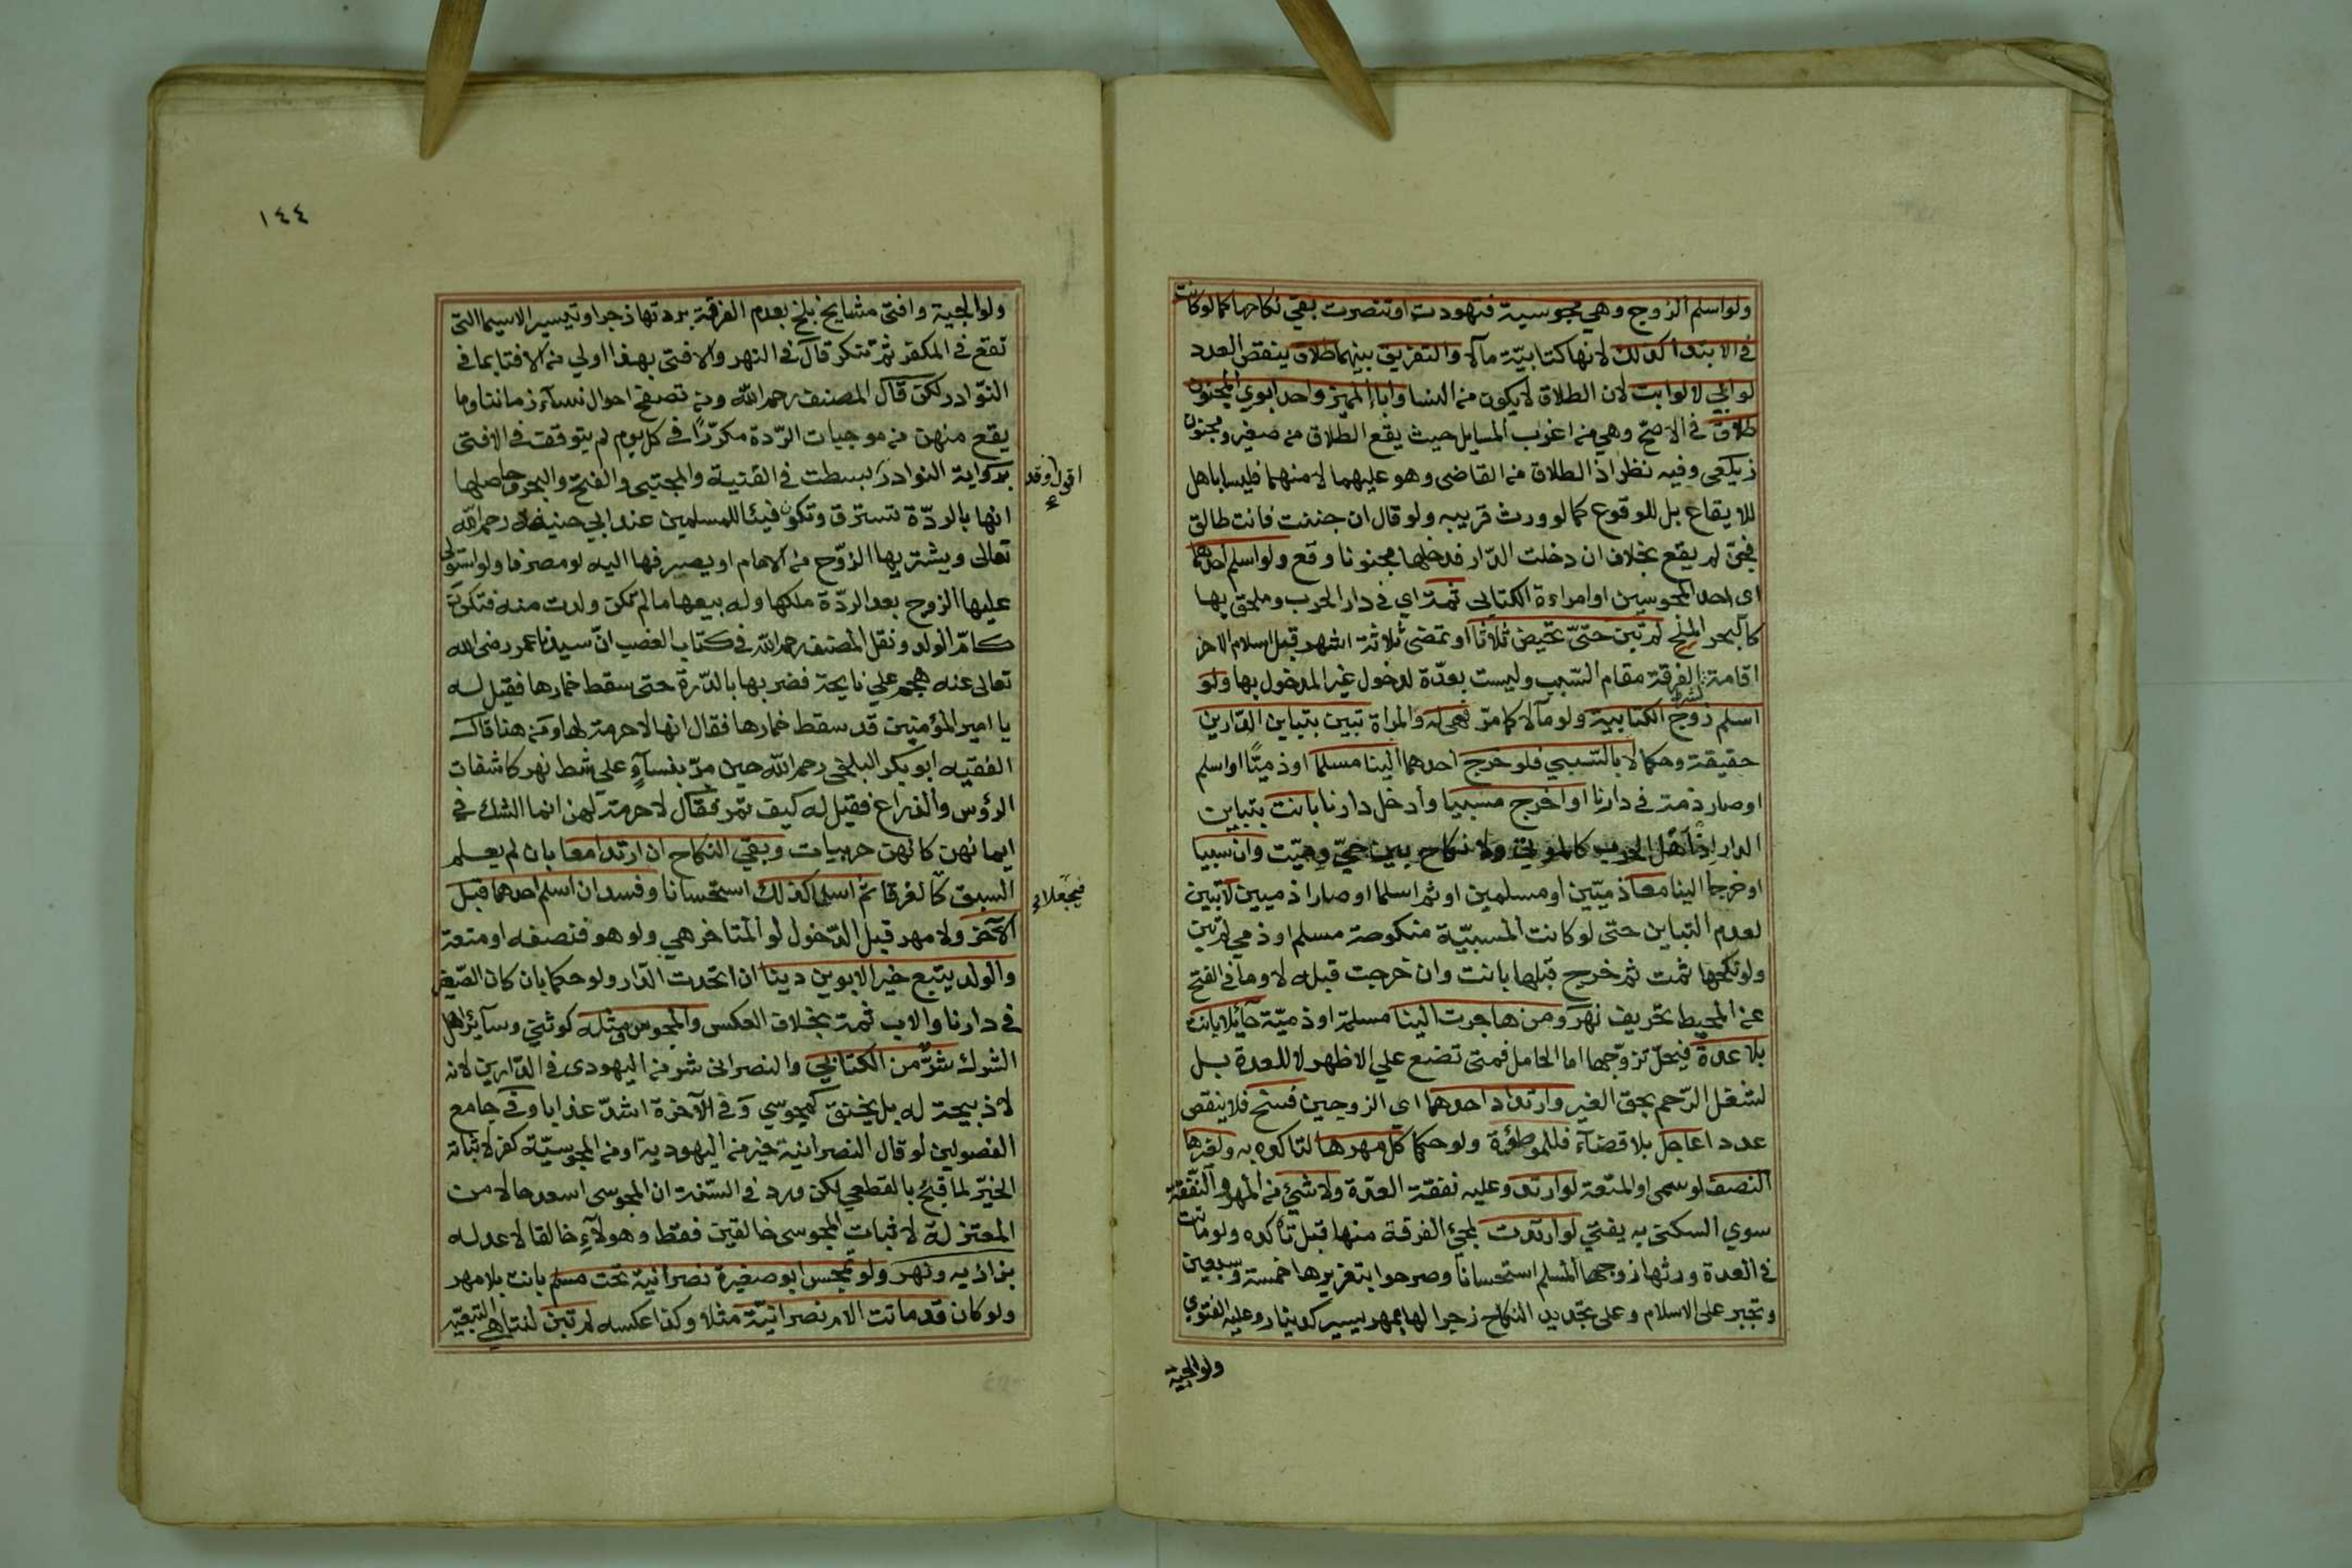 ولو اسلم الزوج وهي مجوسية فتهودت او تنصرت بقي نكاحها كما لو كانت
في الابتدا كذلك لانها كتابيّة مآلا والتفريق بينهما طلاق ينقص العدد
لو ابي لا لو ابت لان الطلاق لا يكون من النسا واباء المميز واحد ابوي المجنون
طلاق في الاصحّ وهي من اغرب المسايل حيث يقع الطلاق من صغير ومجنون
زيلعي وفيه نظر اذ الطلاق من القاضي وهو عليهما لا منهما فليسا باهل
للايقاع بل للوقوع كما لو ورث قريبه ولو قال ان جننت فانت طالق
فجنّ لم يقع بخلاف ان دخلت الدّار فدخلها مجنونا وقع ولو اسلم احدهما
اي احد المجوسين او امراءة الكتابي ثمة اي في دار الحرب وملحق بها
كالبحر الملح لم تبن حتّى تحيض ثلاثا او تمضي ثلاثة اشهر قبل اسلام الاخر
اقامة لشرط الفرقة مقام السّبب وليست بعدّة لدخول غير المدخول بها ولو
اسلم زوج الكتابية ولو مآلا كما مرّ فهي له والمراة تبين بتباين الدّارين
حقيقة وحكما لا بالسّبي فلو خرج احدهما الينا مسلما او ذميّا او اسلم
او صار ذمة في دارنا او اخرج مسبيا وأدخل دارنا بانت بتباين
الدار اذ اهل الحرب كالموتى ولا نكاح بين حيّ وميّت وان سبيا
او خرجا الينا معا ذميّين او مسلمين او ثم اسلما او صارا ذميين لا تبين
لعدم التباين حتى لو كانت المسبيّة منكوحة مسلم او ذمي لم تبن
ولو نكحها ثمت ثم خرج قبلها بانت وان خرجت قبله لا وما في الفتح
عن المحيط تحريف نهر ومن هاجرت الينا مسلمة او ذميّة حآئلا بانت
بلا عدة فيحلّ تزوّجها اما الحامل فمتى تضع علي الاظهر لا للعدة بل
لشغل الرّحم بحق الغير وارتداد احدهما اي الزوجين فسخ فلا ينقص
عدد اعاجل بلا قضآء فللموطؤة ولو حكما كل مهرها لتاكده به ولغيرها
النصف لو سمي او المتعة لو ارتد وعليه نفقة العدّة ولا شيئ من المهر والنّفقة
سوي السكنى به يفتي لو ارتدت لمجئ الفرقة منها قبل تأكده ولو ماتت
في العدة ورثها زوجها المسلم استحسانا وصرحوا بتعزيرها خمسة وسبعين
وتجبر على الاسلام وعلى تجديد النكاح زجرا لها بمهر يسير كدينار وعليه الفتوي
ولوالجية
١٤٤
ولوالجية وافتى مشايخ بلخ بعدم الفرقة بردتها زجرا وتيسيرا لاسيما التى
تقع في المكفر ثم تنكر قال في النهر والافتى بهذا اولي من الافتا بما في
النّوادر لكن قال المصنف رحمه الله ومن تصفح احوال نسآء زماننا وما
يقع منهن من موجبات الرّدة مكرّرًا في كل يوم لم يتوقف في الافتى
برواية النوادر بسطت في القنية والمجتبى والفتح والبحر وحاصلها
اقول وقد
انها بالردّة تسترق وتكون فيئا للمسلمين عند ابي حنيفة رحمه الله
تعالى ويشتريها الزوّج من الامام او يصرفها اليه لو مصرفا ولو استولى
عليها الزوج بعد الردّة ملكها وله بيعها ما لم تكن ولدت منه فتكون
كامّ الولد ونقل المصنف رحمه الله في كتاب الغصب انّ سيدنا عمر رضى الله
تعالى عنه هجم علي نايحة فضربها بالدّرة حتى سقط خمارها فقيل له
يا امير المؤمنين قد سقط خمارها فقال انها لا حرمة لها ومن هنا قال
الفقيه ابو بكر البلخى رحمه الله حين مرّ بنسآءٍ علي شط نهر كاشفات
الرؤس والذراع فقيل له كيف تمر فقال لا حرمة لهن انما الشك في
ايمانهن كانهن حربيات وبقي النكاح ان ارتدا معا بان لم يعلم
السبق كالغرقا ثم اسلما كذلك استحسانا وفسد ان اسلم احدهما قبل
فيجعلان
الآخر ولا مهر قبل الدّخول لو المتاخر هي ولو هو فنصفه او متعة
والولد يتبع خير الابوين دينا ان اتحدت الدّار ولو حكما بان كان الصّغير
في دارنا والاب ثمة بخلاف العكس والمجوسي مثله كوثني وسآئر اهل
الشرك شرٌّ من الكتابي والنصراني شر من اليهودى في الدّارين لانه
لا ذبيحة له بل يخنق كمجوسي وفي الآخرة اشدّ عذابا وفي جامع
الفصولين لو قال النصرانية خير من اليهودية او من المجوسيّة كفر لاثباته
الخيرّ لما قبح بالقطعي لكن ورد في السّنة ان المجوسى اسعد حالا من
المعتزلة لاثبات المجوسى خالقين فقط وهولآءِ خالقا لا عد له
بزازيه ونهر ولو تمجس ابو صغيرة نصرانية تحت مسلم بانت بلا مهر
ولو كان قد ماتت الام نصرانيّة مثلا وكذا عكسه لم تبن لتناهي التبعيّه